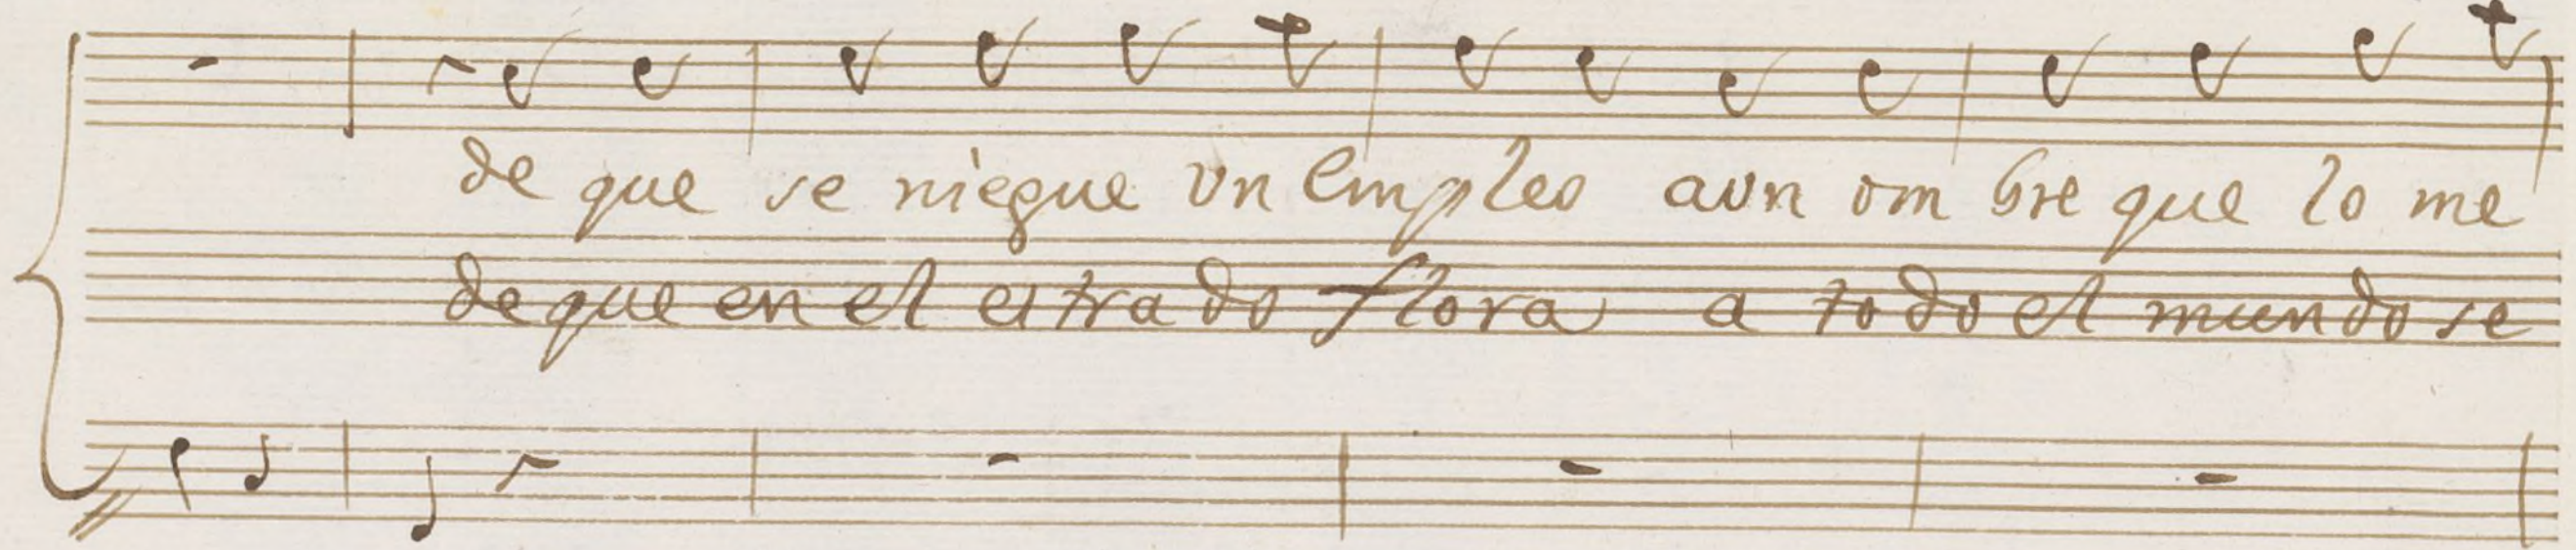 de que se niegue vn Empleo aun om bre que lo me
de que en el estra do flora a to do el mun do se